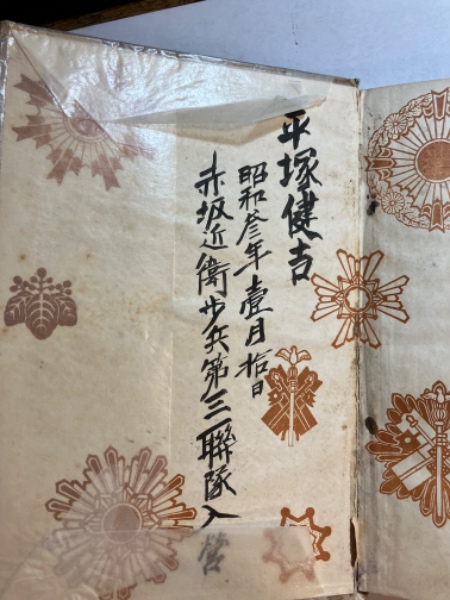 平塚健吉
昭和参年壹月拾日
赤坂近衛歩兵第三聯隊入営